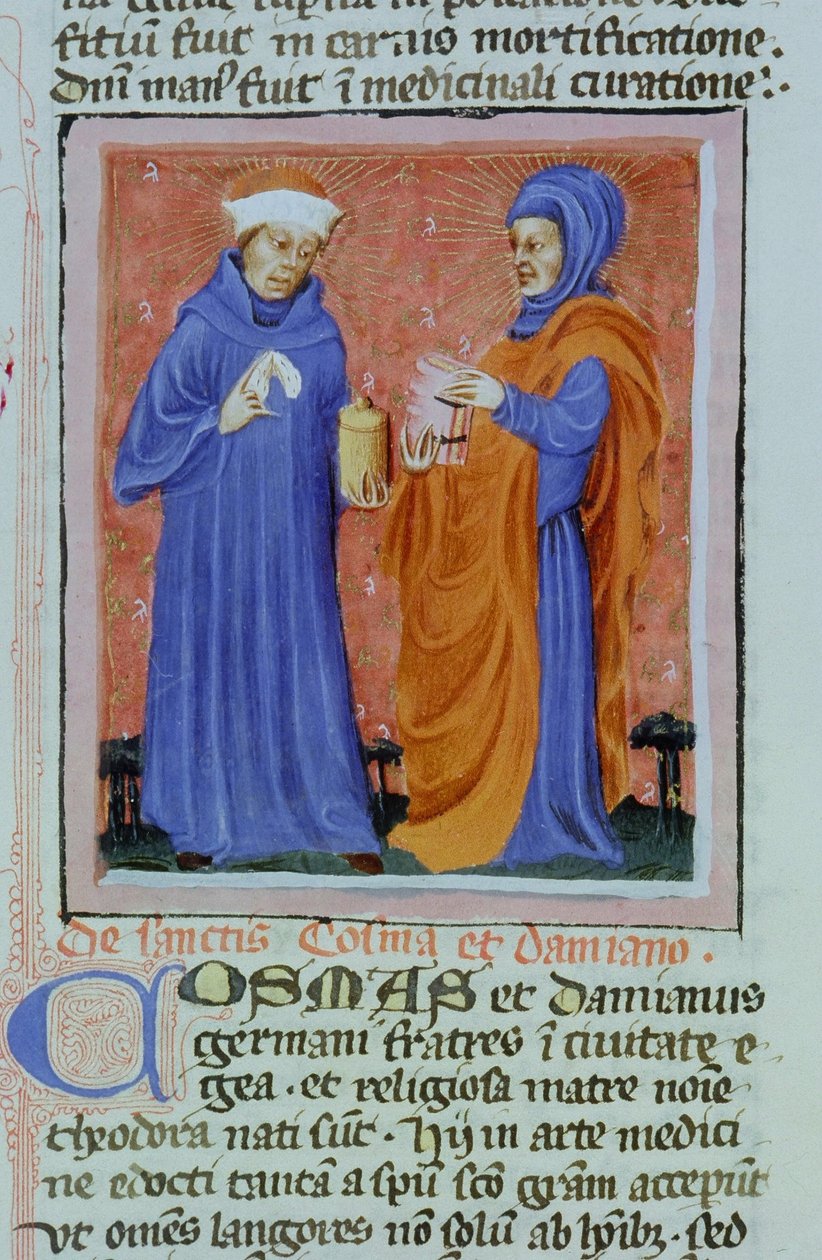 fitiū fuit in carnis mortificatione.
Dn̄i man⁹ fuit ī medicinali curatione:.
De sanctis Cosma et Damiano.
COSMAS et Damianus
germani fratres ī ciuitate e-
gea. et religiosa matre noīe
theodora nati sūt. Hij in arte medici
ne edocti tantā a spū sc̄o grām accepūt
vt om̄es langores nō solū ab hoībꝫ. sed